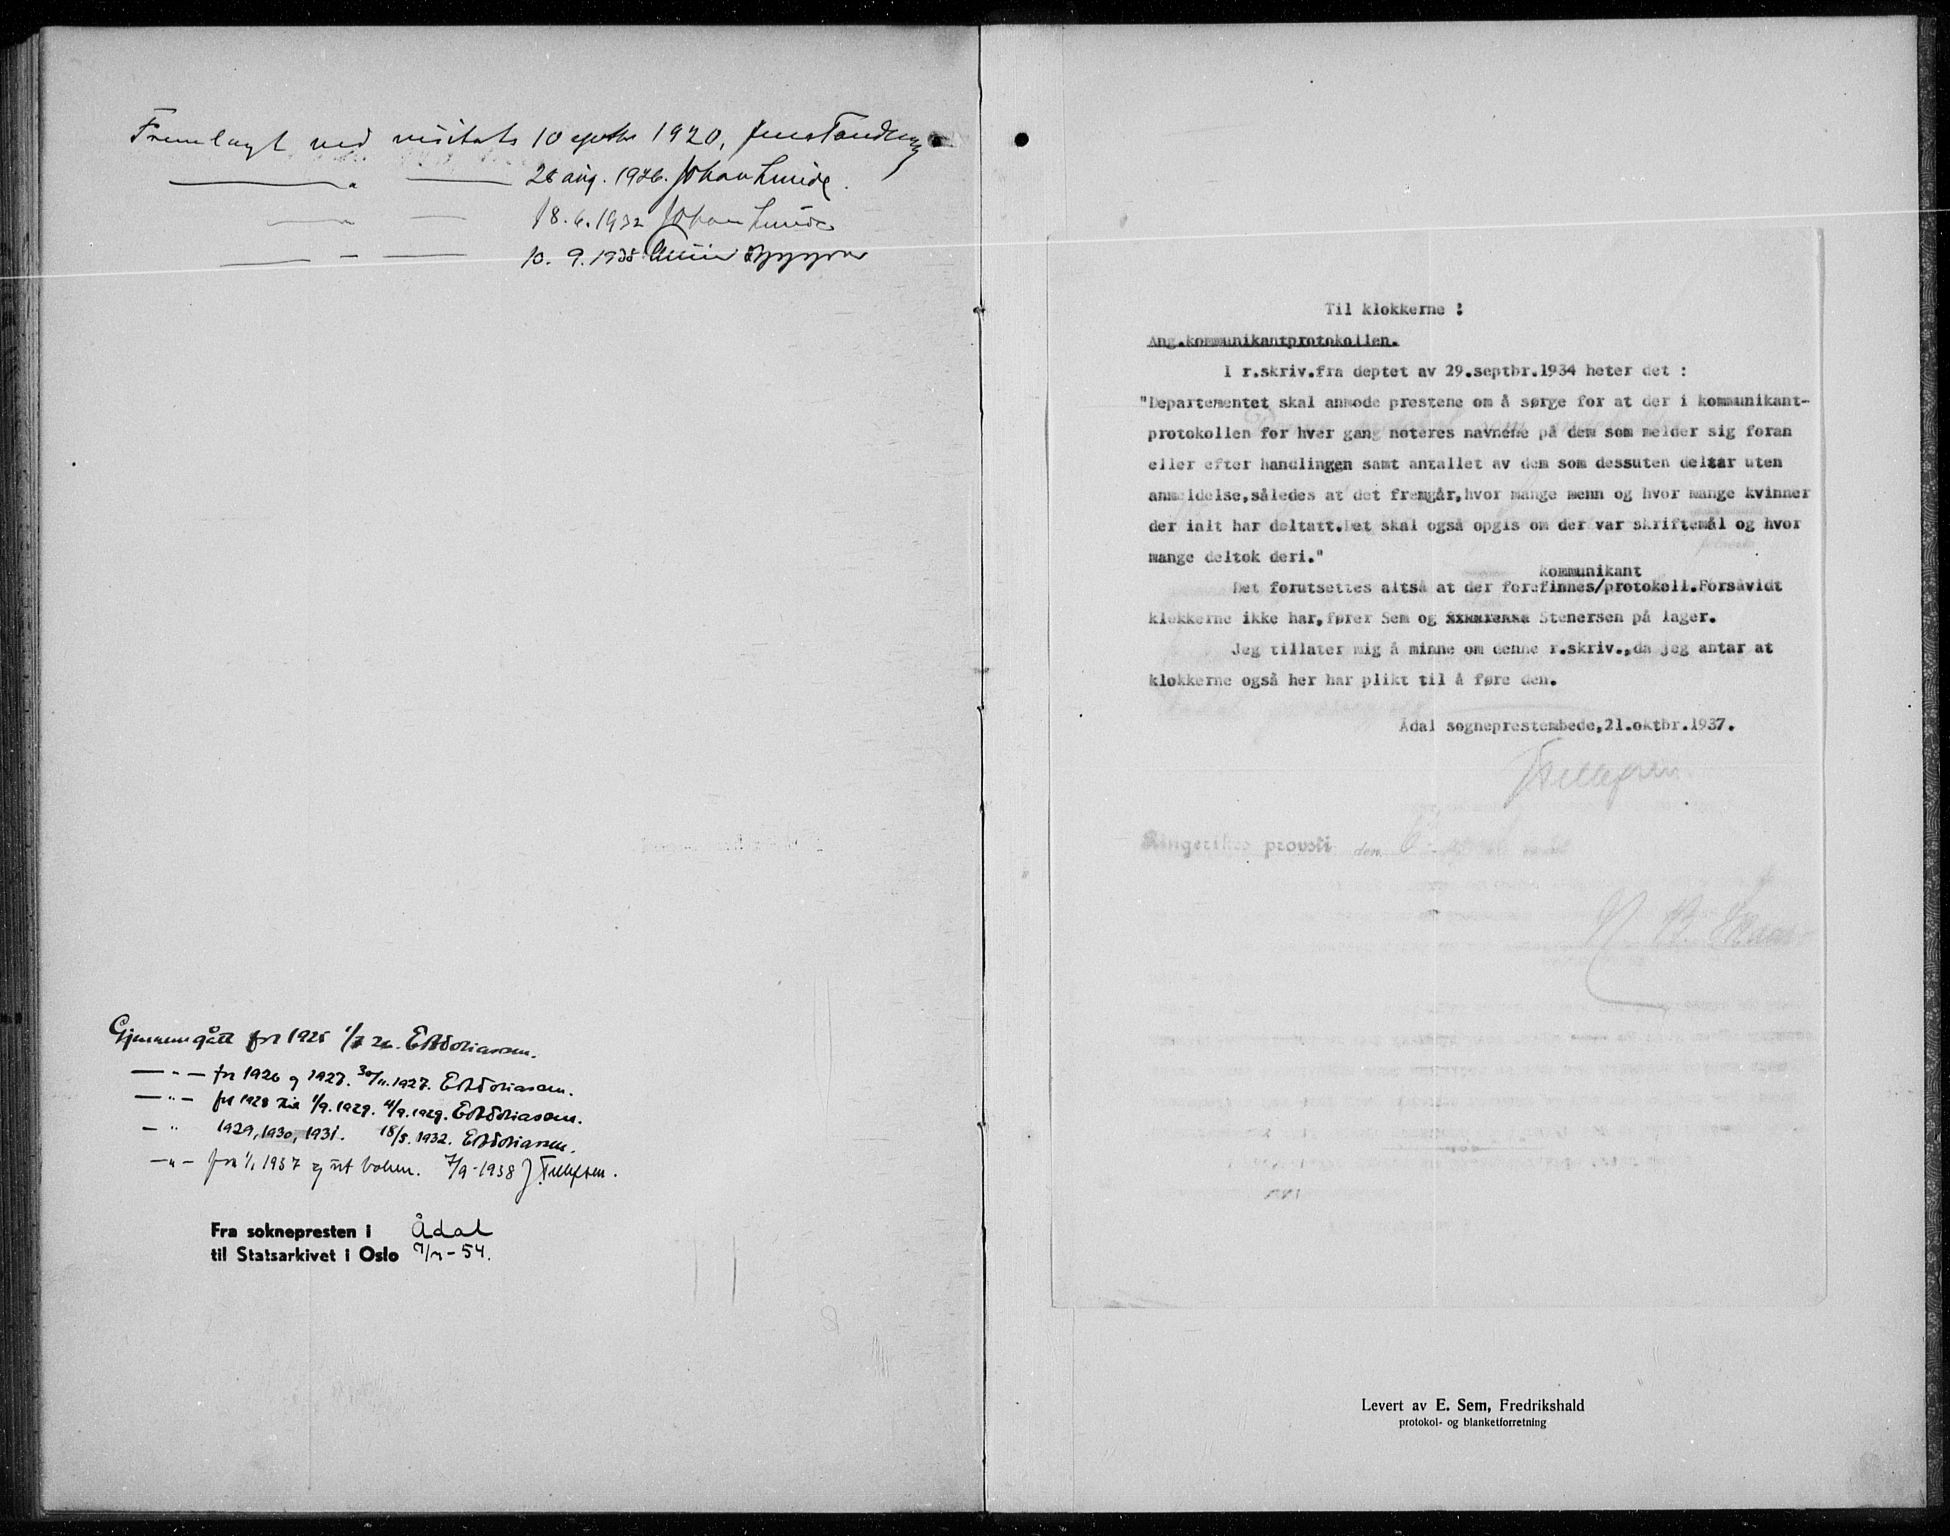 Fremlagt ved visitats 10 septbr 1920, Jens Tandberg
— " — 28 aug. 1926. Johan Lunde.
— " — 18.6.1932 Johan Lunde
— " — 10. 9. 1938
Gjennemgått for 1925 E. A. Tobiassen.
— " — for 1926 og 1927. 30/11.1927. E. A. Tobiassen.
— " — for 1928 til 1/9.1929. 4/9.1929. E. A. Tobiassen.
— " 1929, 1930, 1931. 18/5.1932. E. A. Tobiassen.
— " — fra 1/1 1937 og ut boken. 7/9-1938 J. Tellefsen.
Fra soknepresten i Ådal
til Statsarkivet i Oslo -54.
Til klokkerne :
Ang.kommunikantprotokollen.
I r.skriv.fra deptet av 29.septbr.1934 heter det :
"Departementet skal anmode prestene om å sørge for at der i kommunikant-
protokollen for hver gang noteres navnene på dem som melder sig foran
eller efter handlingen samt antallet av dem som dessuten deltar uten
anmeldelse,således at det fremgår,hvor mange menn og hvor mange kvinner
der ialt har deltatt.Det skal også opgis om der var skriftemål og hvor
mange deltok deri."
kommunikant
Det forutsettes altså at der forefinnes/protokoll.Forsåvidt
klokkerne ikke har,fører Sem og Stenersen på lager.
Jeg tillater mig å minne om denne r.skriv.,da jeg antar at
klokkerne også her har plikt til å føre den.
Ådal sogneprestembede,21.oktbr.1937.
J Tellefsen
Ringerikes provsti den
Levert av E. Sem, Fredrikshald
protokol- og blanketforretning